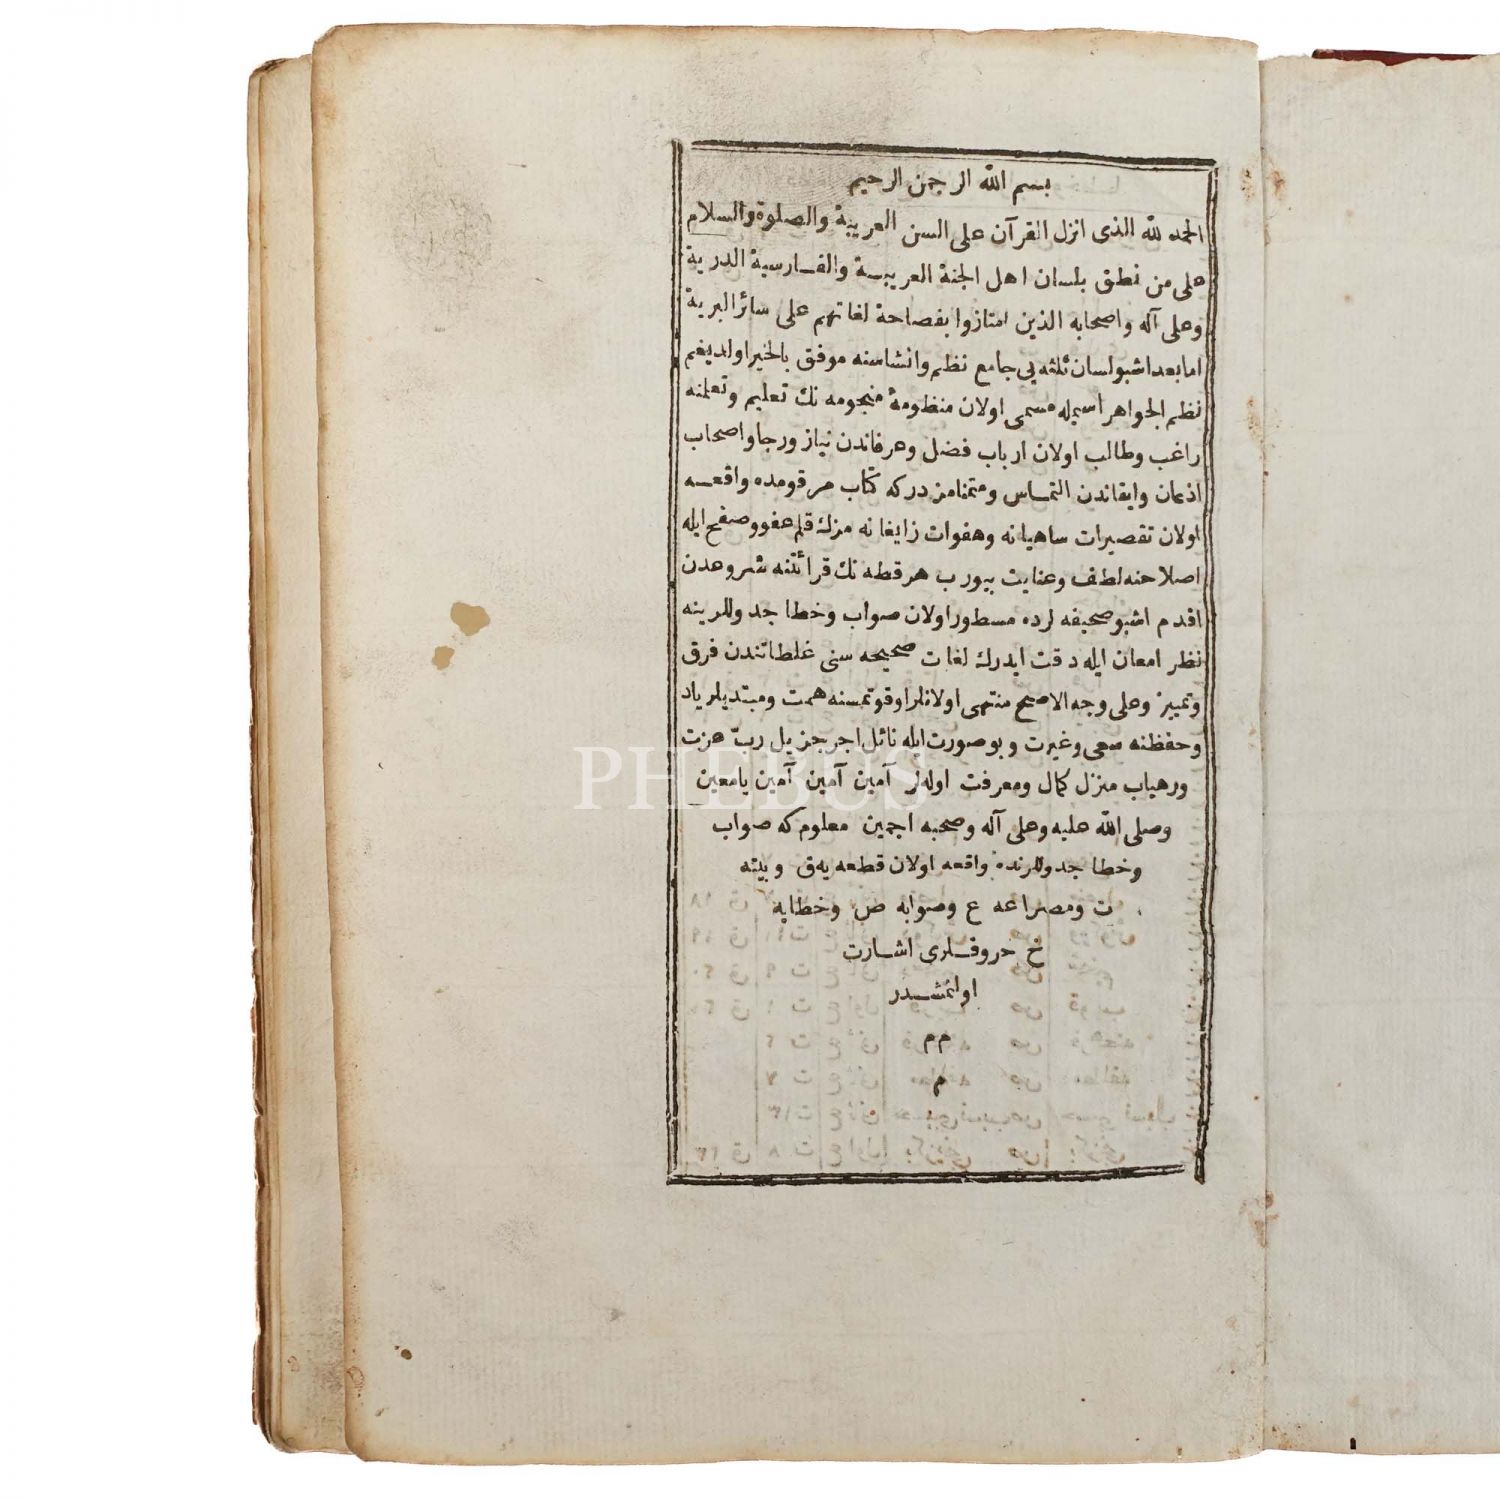 بسم الله الرحمن الرحيم
الحمد لله الذى انزل القرآن على السن العربية والصلوة والسلام
على من نطق بلسان اهل الجنة العربيسة والفارسية الدرية
وعلى آله واصحابه الذين امتازوا بفصاحة لغاتهم على سائر البرية
اما بعد اشبو لسان ثلثه يى جامع نظم وانشاسنه موفق بالخير اولديغم
نظم الجواهر اسميله مسمى اولان منظومهٔ منجومه نك تعليم وتعلمنه
راغب وطالب اولان ارباب فضل وعرفاندن نياز ورجا واصحاب
اذعان وايقاندن التماس ومتمنامز دركه كتاب مرقومده واقعه
اولان تقصيرات ساهيانه وهفوات زايغانه مزك قلم عفو وصفح ايله
اصلاحنه لطف وعنايت بيورب هر قطعه نك قرائتنه شروعدن
اقدم اشبو صحيفه لرده مسطور اولان صواب وخطا جدوللرينه
نظر امعان ايله دقت ايدرك لغات صحيحه سنى غلطاتندن فرق
وتمييز وعلى وجه الاصح منتهى اولانلر اوقوتمسنه همت ومبتديلر ياد
وحفظنه سعى وغيرت وبو صورت ايله نائل اجر جزيل رب عزت
ورهياب منزل كمال ومعرفت اوله لر آمين آمين آمين يا معين
وصلى الله عليه وعلى آله وصحبه اجمعين معلوم كه صواب
وخطا جدوللرنده واقعه اولان قطعه يه ق وبيته
ت ومصراعه ع وصوابه ص وخطايه
خ حروفلرى اشارت
اولنمشدر
م م
م
PHEBUS